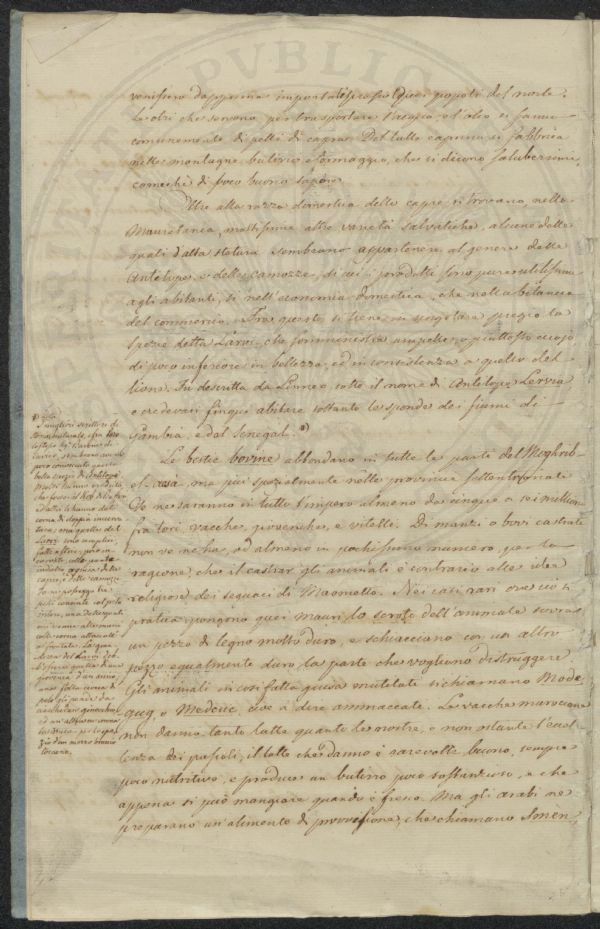 venissero dapprima importati presso quei popoli del norte.
Le otri che servono per trasportare l'acqua, e l'oleo si fanno
comunemente di pelli di capra. Del latte caprino si fabbrica
nelle montagne butirro e formaggio, che si dicono saluberrimi,
comechè di poco buono sapore.
Oltre alla razza domestica delle capre si trovano nella
Mauretania moltissime altre varietà salvatiche, alcune delle
quali d'alta statura sembrano appartenere al genere delle
Antilopi, e delle camozze, di cui i prodotti sono pure utilissimi
agli abitanti, sì nell'economia domestica, che nella bilancia
del commercio. Fra queste si tiene in singolare pregio la
spezie detta Larvi, che somministra una pelle, o piuttosto cuojo
di poco inferiore in bellezza, ed in consistenza a quello del
lione. Fu descritta da Linneo sotto il nome di Antilope Lervia
e credevasi finqui abitare soltanto le sponde dei fiumi di
Gambia, e del Senegal. a)
Le bestie bovine abbondano in tutte le parti del Moghrib-
el-acsa, ma più spezialmente nelle provincie settentrionali
Ve ne saranno in tutto l'impero almeno da cinque a sei millioni
fra tori, vacche, giovenche, e vitelli. Di manzi o bovi castrati
non ve ne ha, od almeno in pochissimo numero, per la
ragione, che il castrar gli animali è contrario alle idee
religiose dei seguaci di Maometto. Nei casi rari ove ciò si
pratica pongono quei mauri lo scroto dell'animale sovra
un pezzo di legno molto duro, e schiacciano con un altro
pezzo egualmente duro la parte che vogliono distruggere
Gli animali in con fatta guisa mutilati si chiamano Mode
gug, o Medcuc, cioè a dire ammaccati. Le vacche marocane
non danno tanto latte quanto le nostre, e non ostante l'eccel
lenza dei pascoli, il latte che danno è rare volte buono, sempre
poco nutritivo, e produce un butirro poco sostanzioso, e che
appena si può mangiare quando è fresco. Ma gli arabi ne
preparano un'alimento di provvisione, che chiamano Smèn,
a)
I migliori scrittori di
che fosse il
corna di doppia incurva
tura: ma quello del
Larvi sono semplici,
capre, e delle camozze
pelo